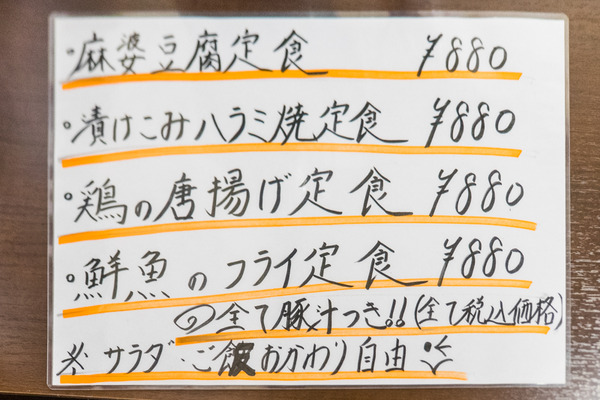 ・麻婆豆腐定食 ¥880
・漬けこみハラミ焼定食 ¥880
・鶏の唐揚げ定食 ¥880
・鮮魚のフライ定食 ¥880
全て豚汁つき!!(全て税込価格)
※サラダ・ご飯おかわり自由